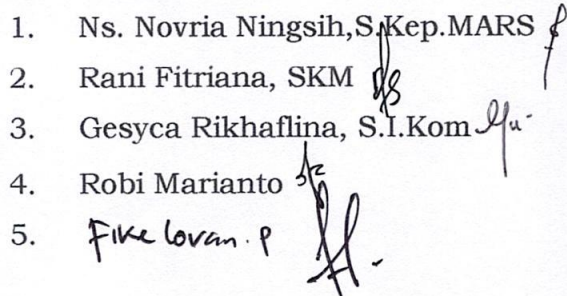 1. Ns. Novria Ningsih,S.Kep.MARS
2. Rani Fitriana, SKM
3. Gesyca Rikhaflina, S.I.Kom
4. Robi Marianto
5. Fike lovan. P